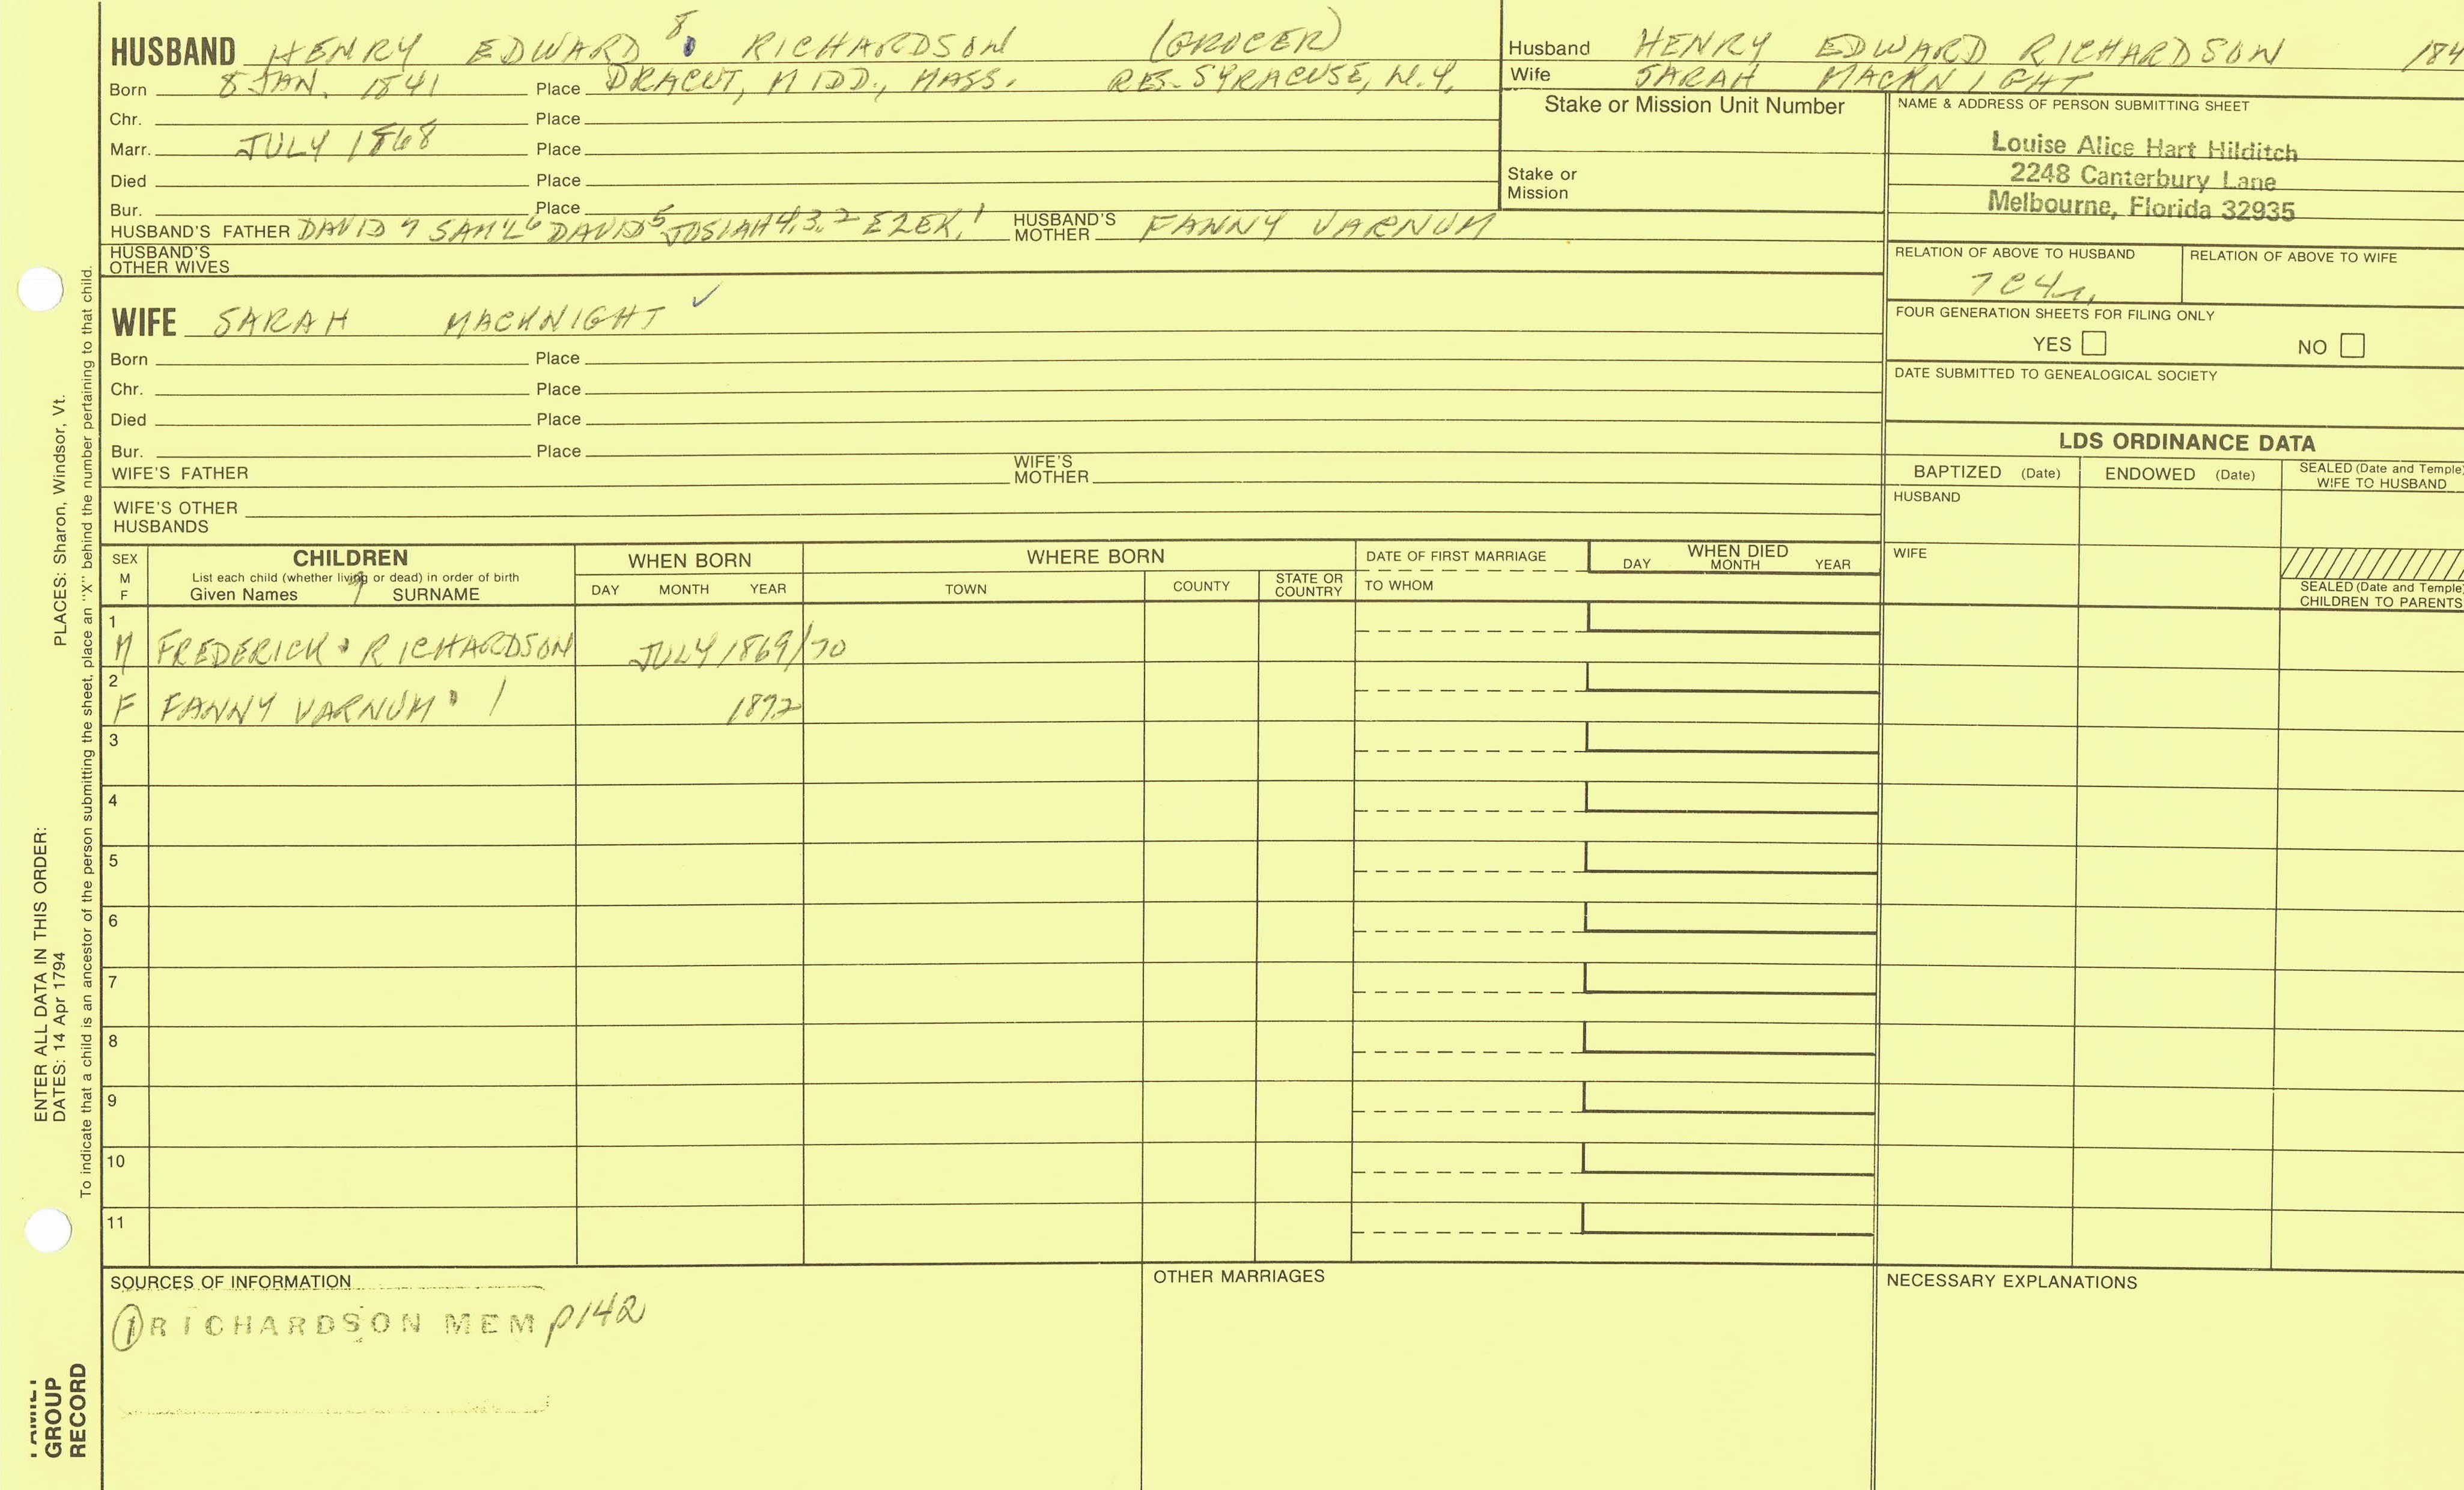 HUSBAND HENRY EDWARD 8 RICHARDSON (GROCER)
Born 8 JAN. 1841 Place DRACUT, MIDD., MASS. RES. SYRACUSE, N.Y.
Chr. Place
Marr. JULY 1868 Place
Died Place
Bur. Place
HUSBAND'S FATHER DAVID 7 SAM'L 6 DAVID 5 JOSIAH 4,3,2 EZEK. 1 HUSBAND'S MOTHER FANNY VARNUM
HUSBAND'S OTHER WIVES
Husband HENRY EDWARD RICHARDSON 184
Wife SARAH MACKNIGHT
Stake or Mission Unit Number
Stake or Mission
NAME & ADDRESS OF PERSON SUBMITTING SHEET
Louise Alice Hart Hilditch
2248 Canterbury Lane
Melbourne, Florida 32935
RELATION OF ABOVE TO HUSBAND RELATION OF ABOVE TO WIFE
FOUR GENERATION SHEETS FOR FILING ONLY
YES NO
DATE SUBMITTED TO GENEALOGICAL SOCIETY
WIFE SARAH MACKNIGHT ✓
Born Place
Chr. Place
Died Place
Bur. Place
WIFE'S FATHER WIFE'S MOTHER
WIFE'S OTHER HUSBANDS
LDS ORDINANCE DATA
BAPTIZED (Date) ENDOWED (Date) SEALED (Date and Temple) WIFE TO HUSBAND
HUSBAND
WIFE
SEALED (Date and Temple) CHILDREN TO PARENTS
SEX M F CHILDREN List each child (whether living or dead) in order of birth Given Names SURNAME
WHEN BORN DAY MONTH YEAR
WHERE BORN TOWN COUNTY STATE OR COUNTRY
DATE OF FIRST MARRIAGE TO WHOM
WHEN DIED DAY MONTH YEAR
1 M FREDERICK RICHARDSON JULY 1869/70
2 F FANNY VARNUM 1872
3
4
5
6
7
8
9
10
11
SOURCES OF INFORMATION
① RICHARDSON MEM p142
OTHER MARRIAGES
NECESSARY EXPLANATIONS
ENTER ALL DATA IN THIS ORDER:
DATES: 14 Apr 1794 PLACES: Sharon, Windsor, Vt.
To indicate that a child is an ancestor of the person submitting the sheet, place an "X" behind the number pertaining to that child.
FAMILY
GROUP
RECORD